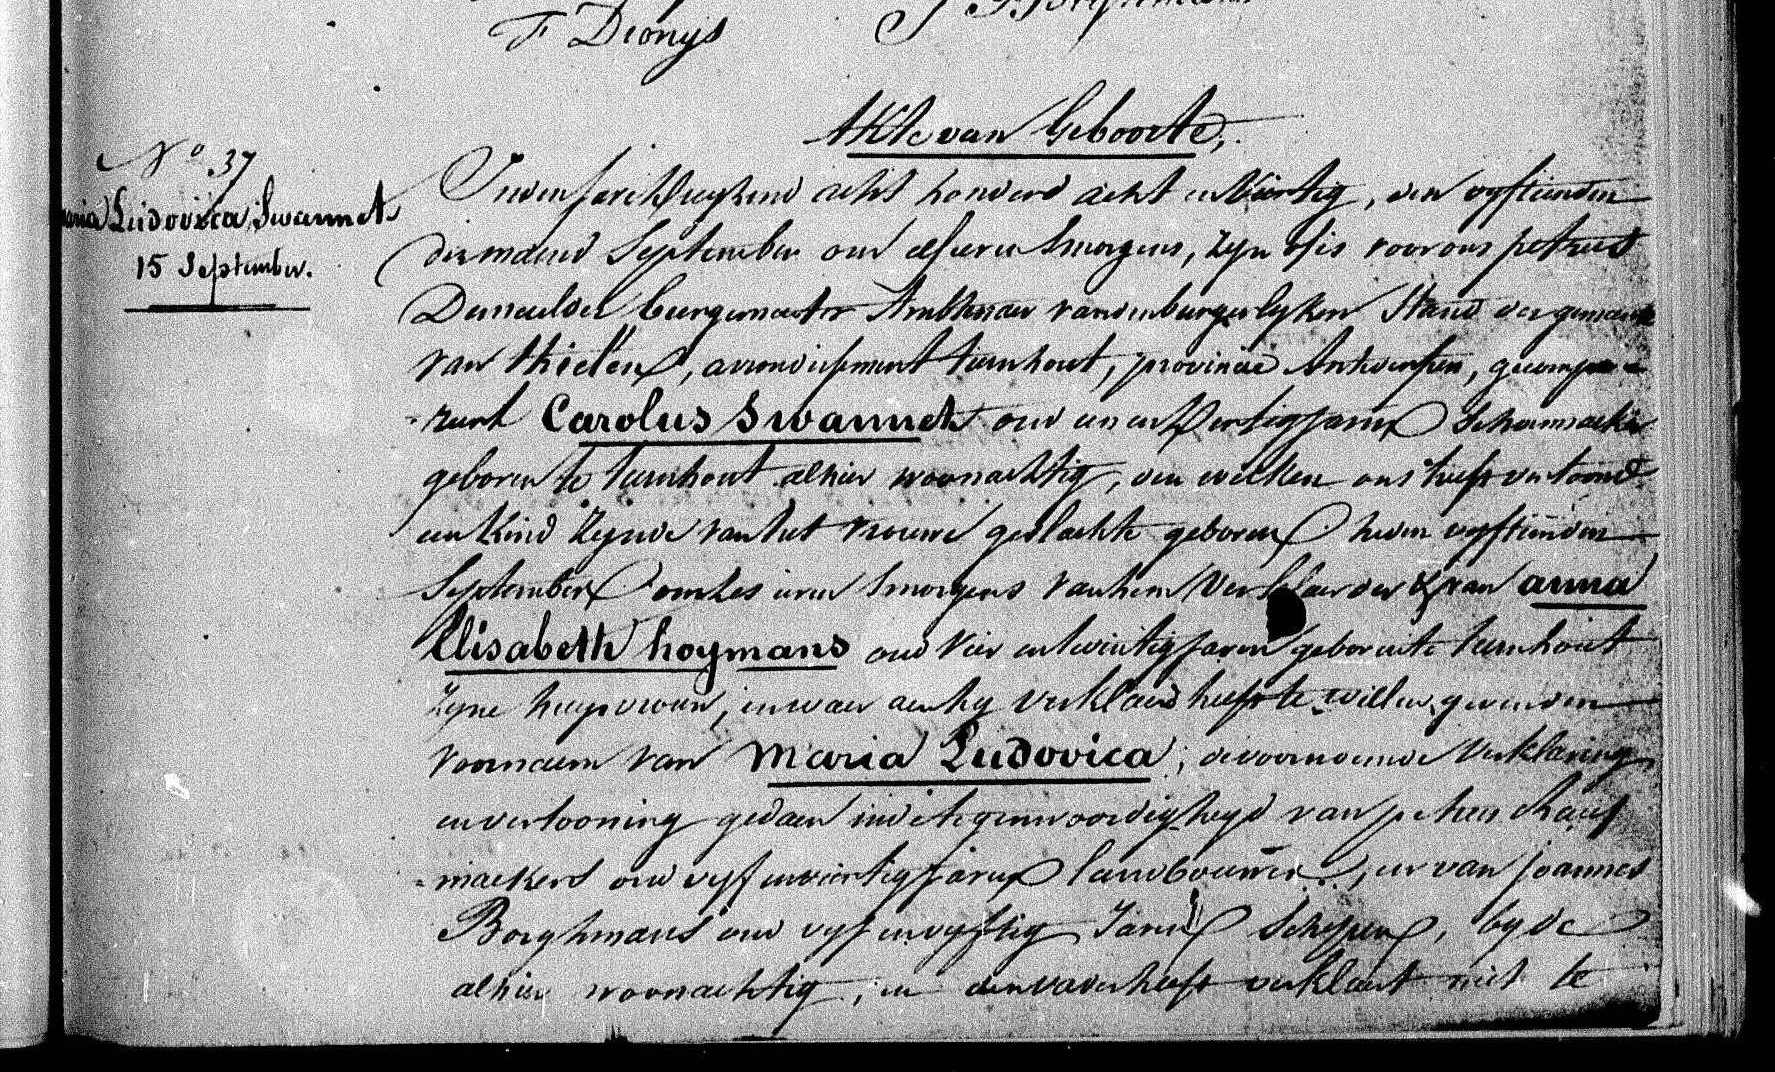 F Dionys
Akte van Geboorte,
N° 37
Maria Ludovica Swannet
15 September.
In den jare duyzend acht honderd acht en Veertig, den vyftienden
der maend September om elf uren smorgens, zyn voor ons petrus
Demeulder burgemeester Ambtenaer van den burgerlyken Stand der gemeente
van thielen, arrondissement turnhout, provincie Antwerpen, gecompa
reert Carolus Swannet oud een en dertig jaren Schoenmaeker
geboren te turnhout alhier woonachtig, den welken ons heeft vertoond
een Kind Zynde van het vrouwe geslachte geboren heden vyftienden
September om zes uren smorgens van hem Verklaerder & van anna
Elisabeth hoymans oud Vier en twintig jaren geboren te turnhout
Zyne huysvrouw, en waer aen hy verklaerd heeft te willen geven den
voornaem van Maria Ludovica, de voornoemde Verklaring
en vertooning gedaen in de tegenwoordigheyd van petrus
maekers oud vyf en veertig jaren landbouwer, en van joannes
Borghmans oud vyf en vyftig Jaren Schepen, byde
alhier woonachtig, en den vader heeft verklaert niet te